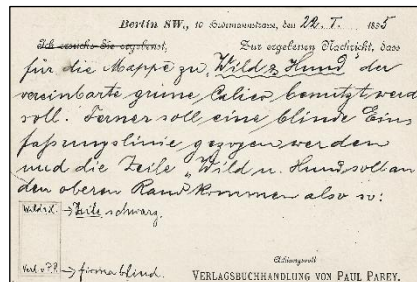 Berlin SW., 10 Hedemannstrasse, den 22. I. 1895
Ich ersuche Sie ergebenst, Zur ergebenen Nachricht, dass
für die Mappe zu „Wild & Hund" der
vereinbarte grüne Calico benutzt werden
soll. Ferner soll eine blinde Ein=
fassungslinie gezogen werden
und die Zeile „Wild u. Hund soll an
den oberen Rand kommen also so:
Wild u. H. → Zeile schwarz.
Verl. v. P. P. → firma blind.
Achtungsvoll
VERLAGSBUCHHANDLUNG VON PAUL PAREY.